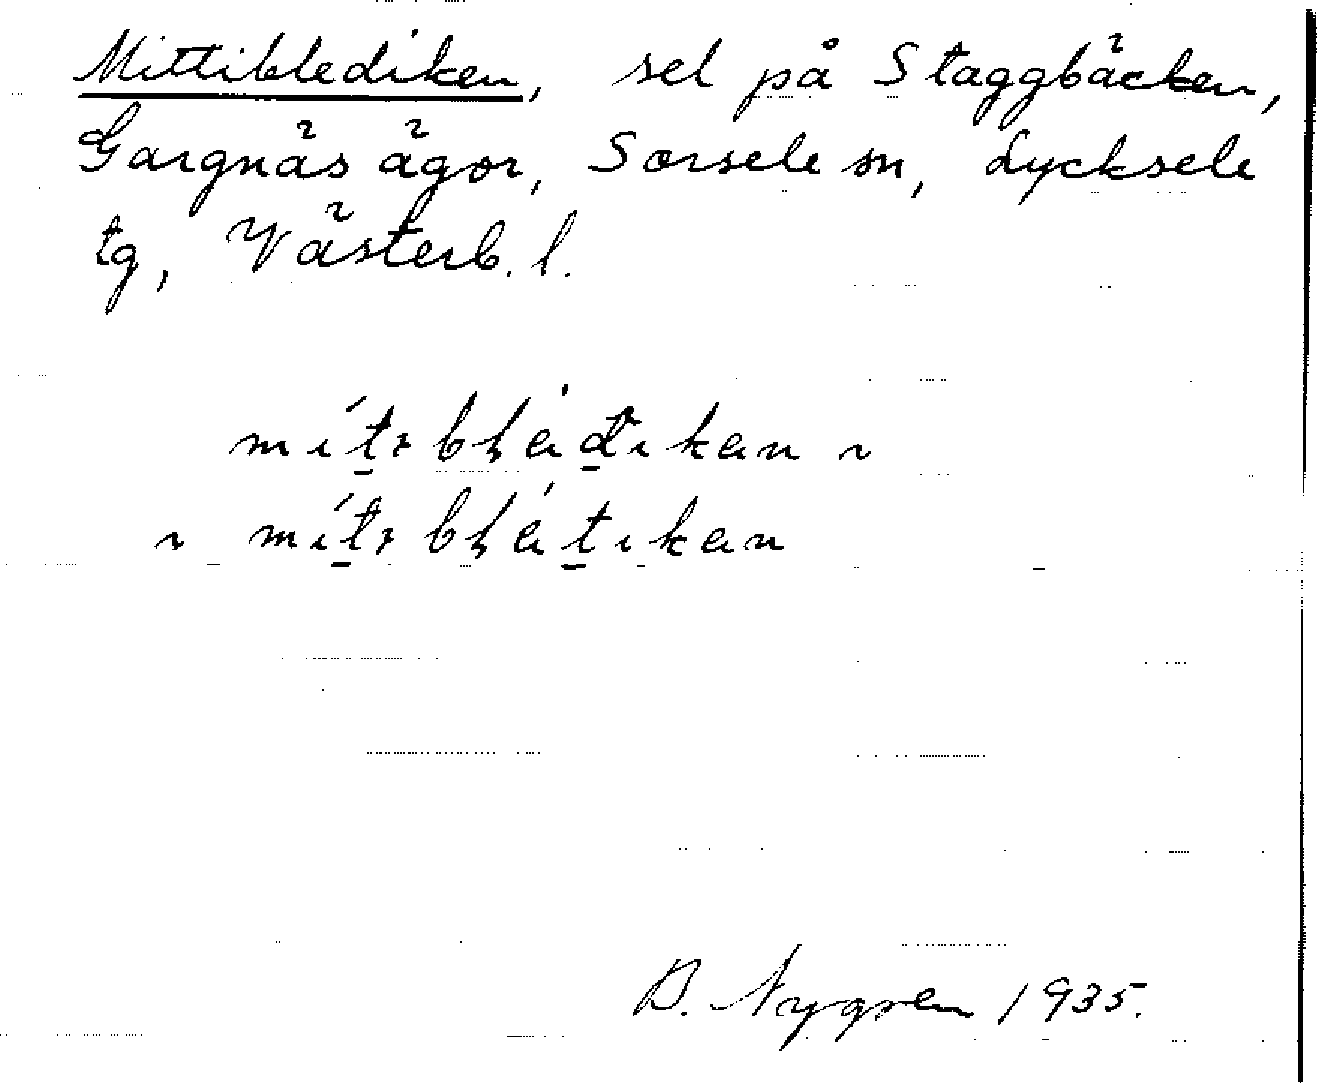 Mittiblediken, sel på Staggbäcken,
Gargnäs ägor, Sorsele sn, Lycksele
tg, Västerb. l.
B. Nygren 1935.